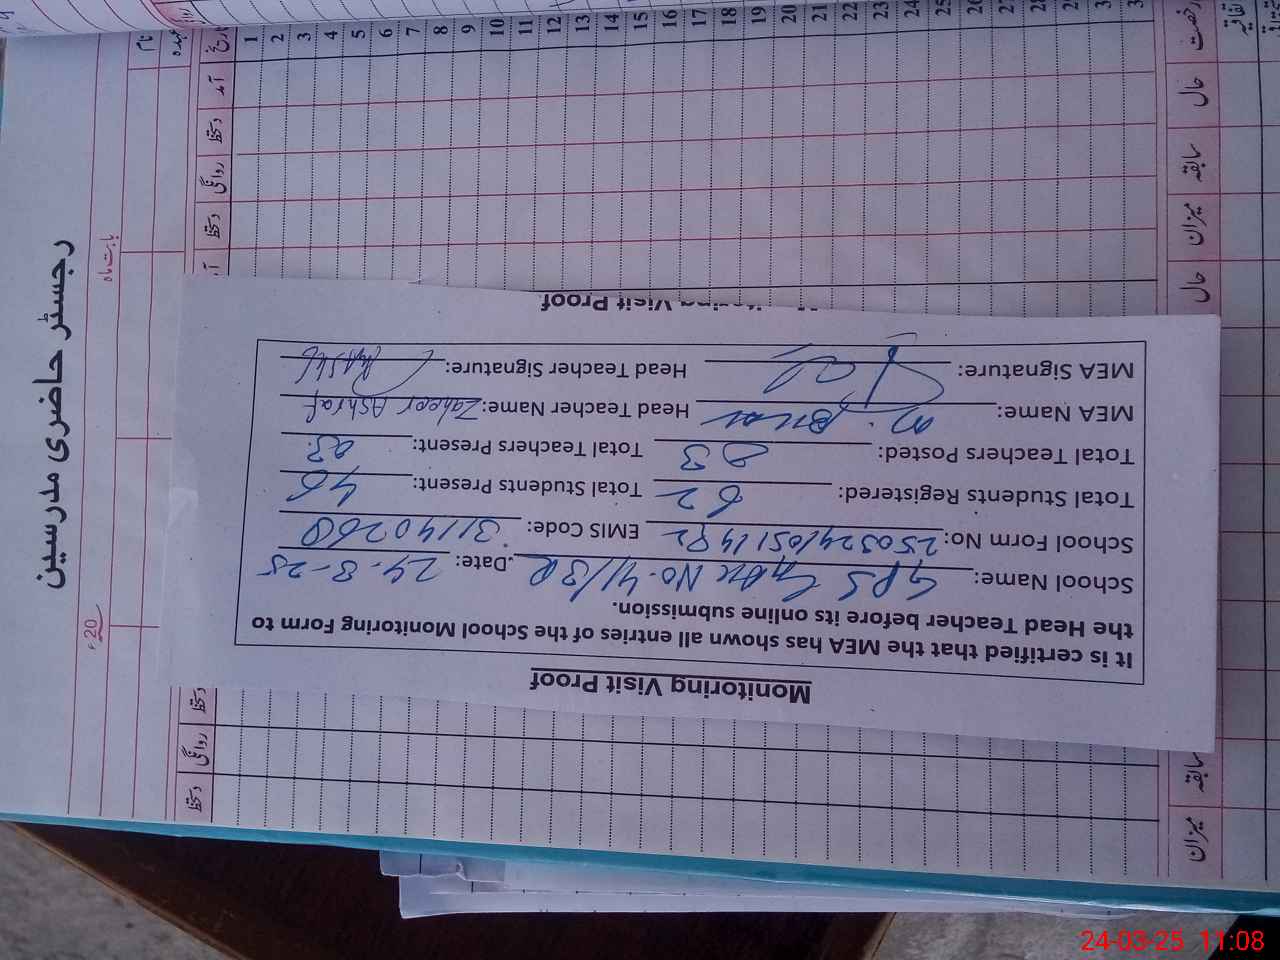 Monitoring Visit Proof
It is certified that the MEA has shown all entries of the School Monitoring Form to
the Head Teacher before its online submission.
School Name: GPS Chak No. 41/3R Date: 24-3-25
School Form No: 25032410511482 EMIS Code: 31140260
Total Students Registered: 62 Total Students Present: 46
Total Teachers Posted: 03 Total Teachers Present: 03
MEA Name: M. Bilal Head Teacher Name: Zaheer Ashraf
MEA Signature: Head Teacher Signature:
Monitoring Visit Proof
رجسٹر حاضری مدرسین
بابت ماہ
20ء
نام
عہدہ
تاریخ
1 2 3 4 5 6 7 8 9 10 11 12 13 14 15 16 17 18 19 20 21 22 23 24 25 26 27 28 29 30
آمد دستخط روانگی دستخط
دستخط روانگی دستخط
رخصت حال سابقہ میزان حال
سابقہ میزان
24-03-25 11:08